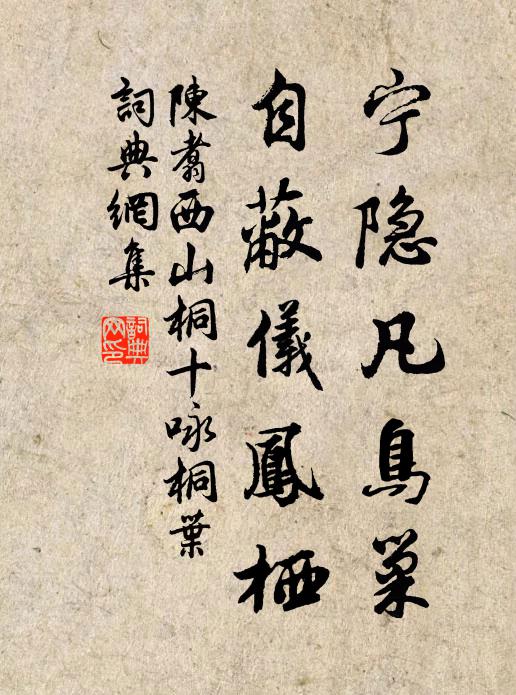 宁隐凡鳥巢
自蔽儀鳳栖
陳翥西山桐十咏桐葉
詞典網集
詞典網印